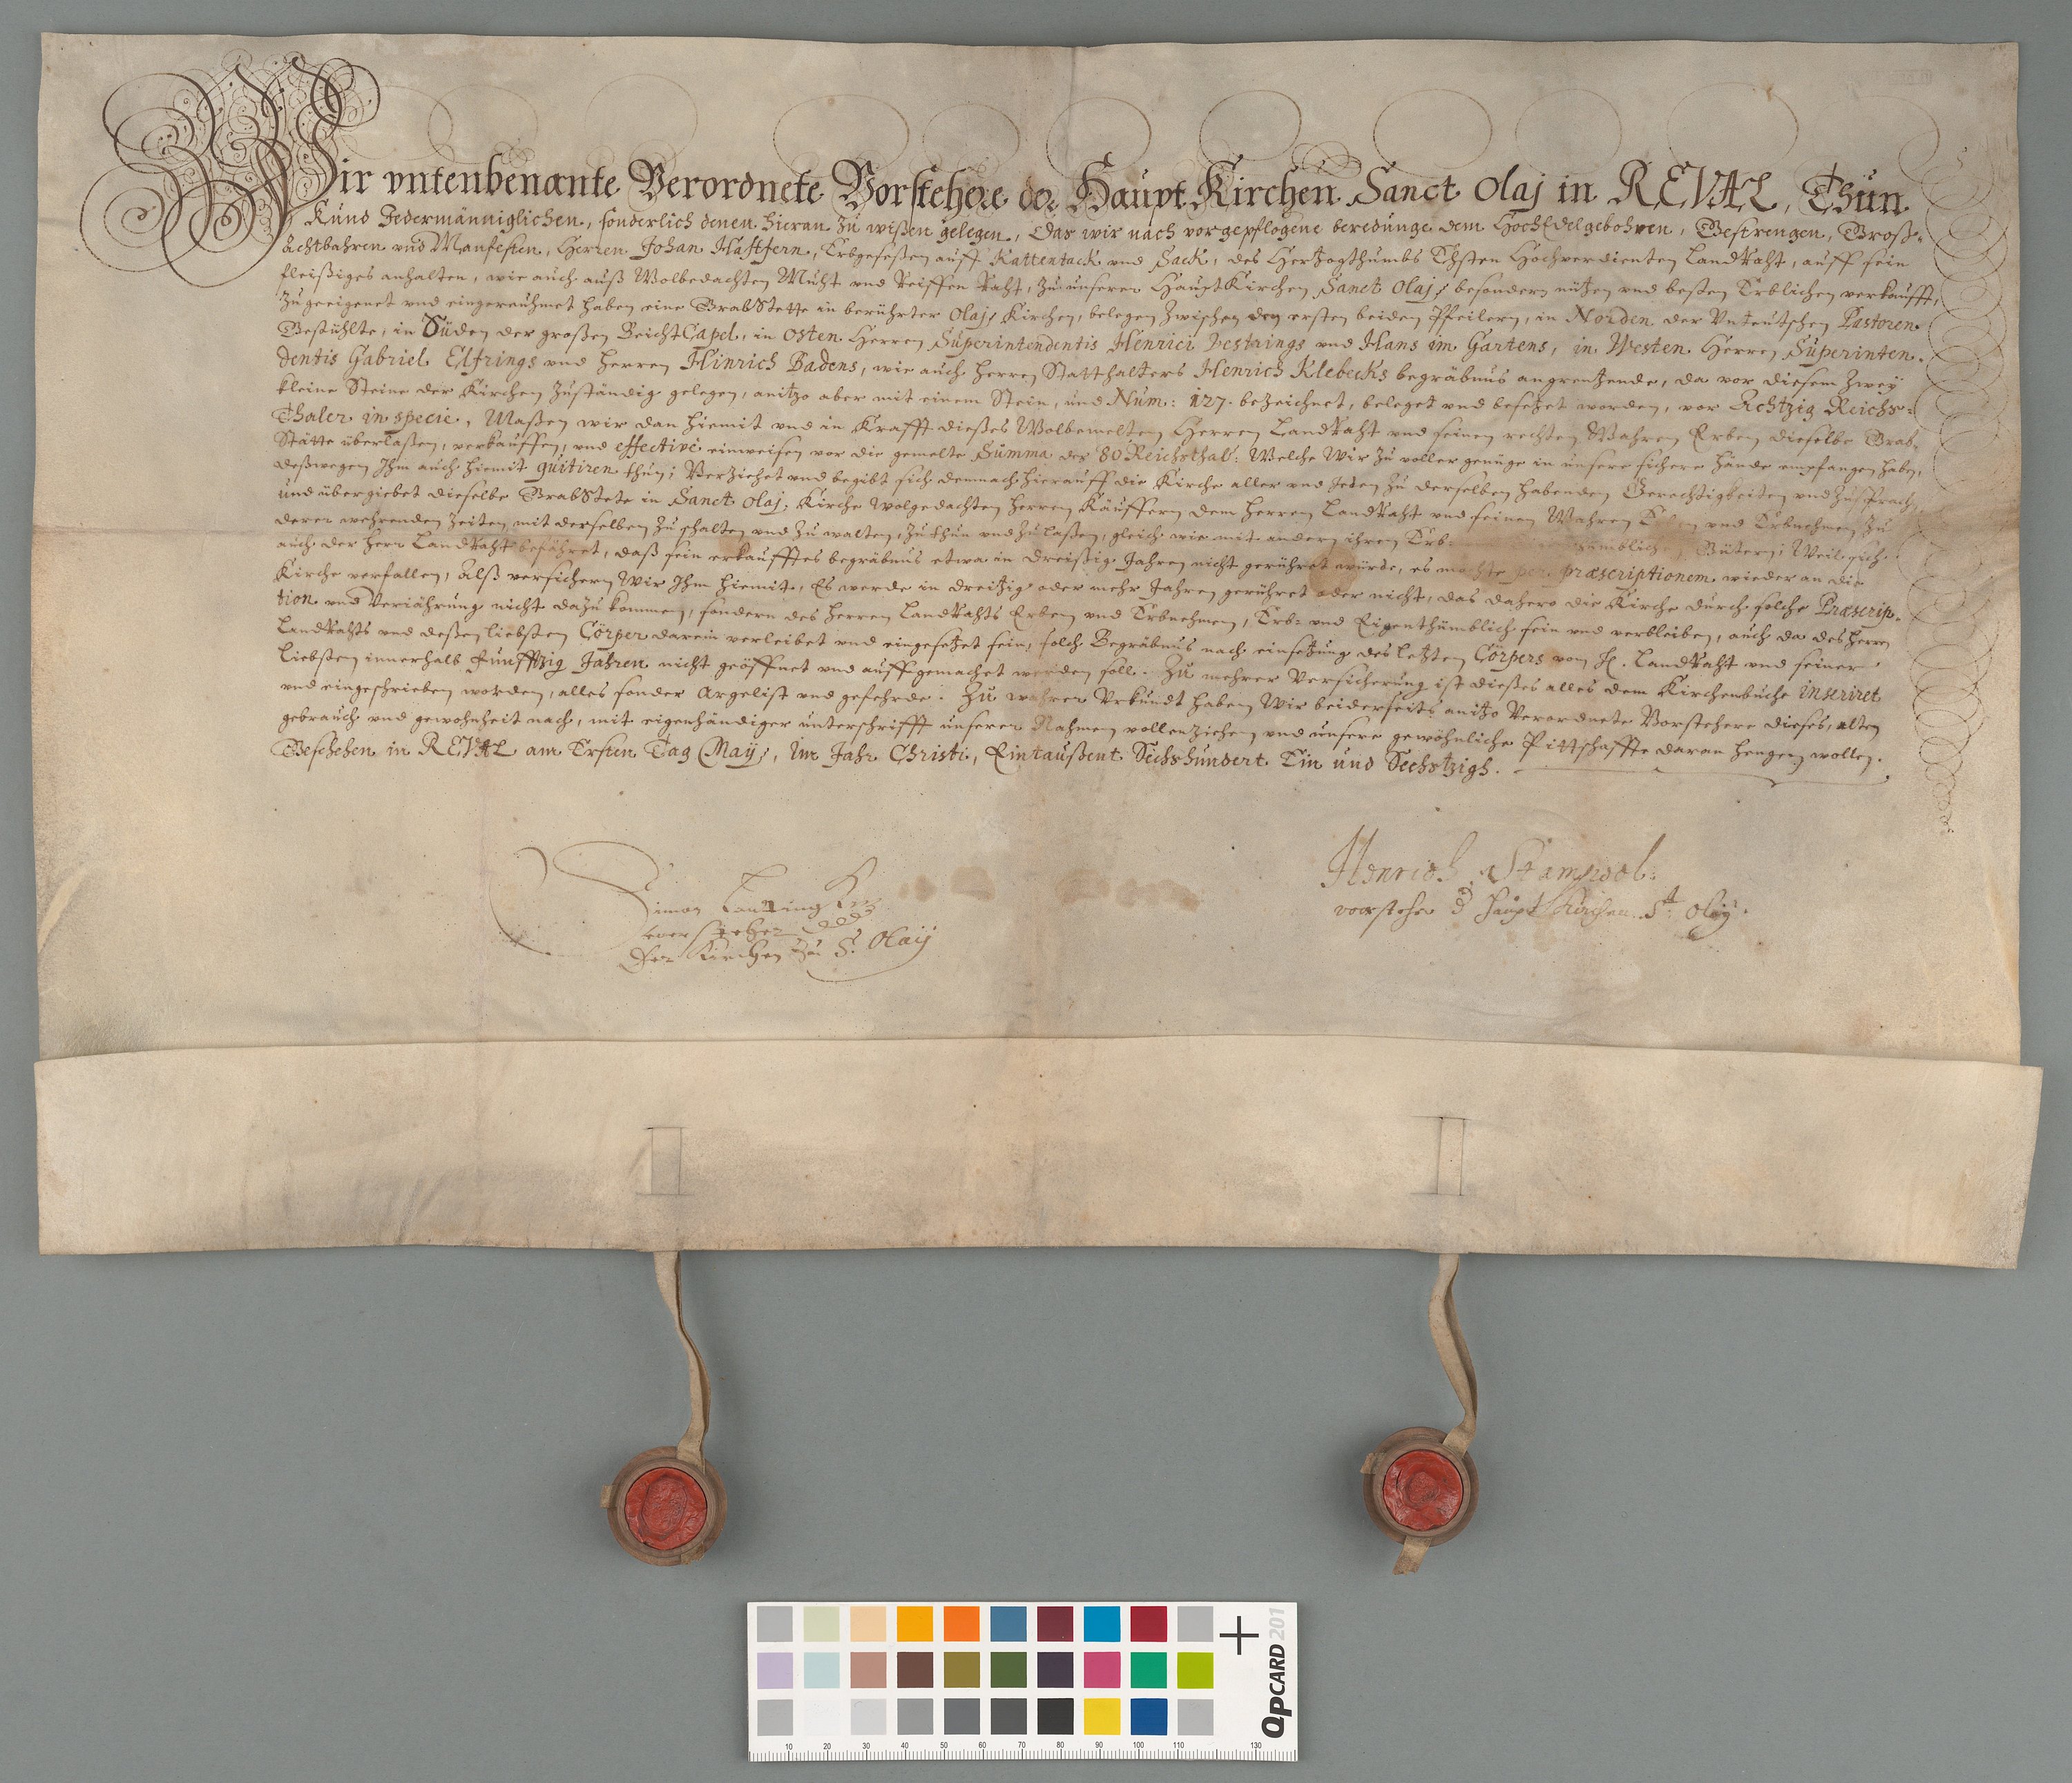 Wir vntenbenante Verordnete Vorstehere der Haupt Kirchen Sanct Olaj in REVAL, Thun
Kund Jedermänniglichen, sonderlich denen hieran zu wißen gelegen, Das wir nach vorgepflogene beredunge dem HochEdelgebohren, Gestrengen, Groß-
Achtbahren vnd Manfesten, Herren Johan Hastfern, Erbgeseßen auff Kattentack vnd Sack, des Hertzogthumbs Ehsten Hochverdienten LandRaht, auff sein
fleißiges anhalten, wie auch auß Wolbedachten Muht vnd Reiffen Raht, zu unseren HauptKirchen Sanct Olaj, besondern nützen vnd besten Erblichen verkaufft,
zu geeigenet vnd eingereuhmet haben eine GrabStette in berührter Olaj Kirchen, belegen zwischen den ersten beiden Pfeilern, in Norden der Vnteutschen Pastoren
Gestühlte, in Süden der großen BeichtCapel, in Osten Herren Superintendentis Henrici Vestrings vnd Hans im Gartens, in Westen Herren Superinten-
dentis Gabriel Elfrings vnd Herren Hinrich Badens, wie auch Herren Statthalters Henrich Klebecks begräbnus angrentzende, da vor diesem zwey
kleine Steine der Kirchen zuständig gelegen, anitzo aber mit einem Stein, und Num: 127. bezeichnet, beleget vnd besetzet worden, vor Achtzig Reichs-
Thaler in specie, Maßen wir dan hiemit vnd in Krafft dießes Wolbemelten Herren LandRaht vnd seinen rechten Wahren Erben dieselbe Grab-
Stätte überlaßen, verkauffen, vnd effectivè einweisen vor die gemelte Summa der 80 Reichsthal: Welche Wir zu voller genüge in unsere sichere hände empfangen haben,
deßwegen Ihm auch hiemit quitiren thun; Verziehet vnd begibt sich demnach hierauff die Kirche aller vnd Jeden zu derselben habenden Gerechtigkeiten vnd Zusprach,
und übergiebet dieselbe GrabStete in Sanct Olaj, Kirche wolgedachten Herren Käuffern dem Herren LandRaht vnd seinen Wahren Erben vnd Erbnehmen, zu
deren wehrenden Zeiten, mit derselben zu schalten vnd zu walten, zu thun vnd zu laßen, gleich wie mit andern ihren Erb- Gütern; Weil sich
auch der Herr LandRaht befahret, daß sein erkaufftes begräbnus etwa in dreißig Jahren nicht gerühret würde, es machte per præscriptionem wieder an die
Kirche verfallen, Alß versichern Wir Ihm hiemit, Es werde in dreißig oder mehr Jahren gerühret oder nicht, das dahero die Kirche durch solche Præscrip-
tion vnd Verjährung nicht dazu kommen, sondern des Herren LandRahts Erben vnd Erbnehmen, Erb- vnd Eigenthümblich sein vnd verbleiben, auch da des Herrn
LandRahts vnd deßen liebsten Cörper darein verleibet vnd eingesetzet sein, solch Begräbnus nach einsetzung des letzten Cörpers vom H. LandRaht vnd seiner
Liebsten innerhalb Funfftzig Jahren nicht geöffnet vnd auffgemachet werden soll. Zu mehrer Versicherung ist dießes alles dem Kirchenbuche inseriret
vnd eingeschrieben worden, alles sonder Argelist vnd gefehrde. Zu wahren Vrkundt haben Wir beiderseits anitzo Verordnete Vorstehere dieses, alten
gebrauch vnd gewohnheit nach, mit eigenhändiger unterschrifft unserer Nahmen vollenziehen vnd unsere gewöhnliche Pittschaffte daran hengen wollen.
Geschehen in REVAL am Ersten Tag Maij, im Jahr Christi, Eintaußent Sechshundert Ein und Sechstzigh.
Simon
vorsteher
der Kirchen zu S. Olaij
Henrich Stampeel:
vorsteher d haupt Kirchen St. Olaij.
QPCARD 201
10 20 30 40 50 60 70 80 90 100 110 130